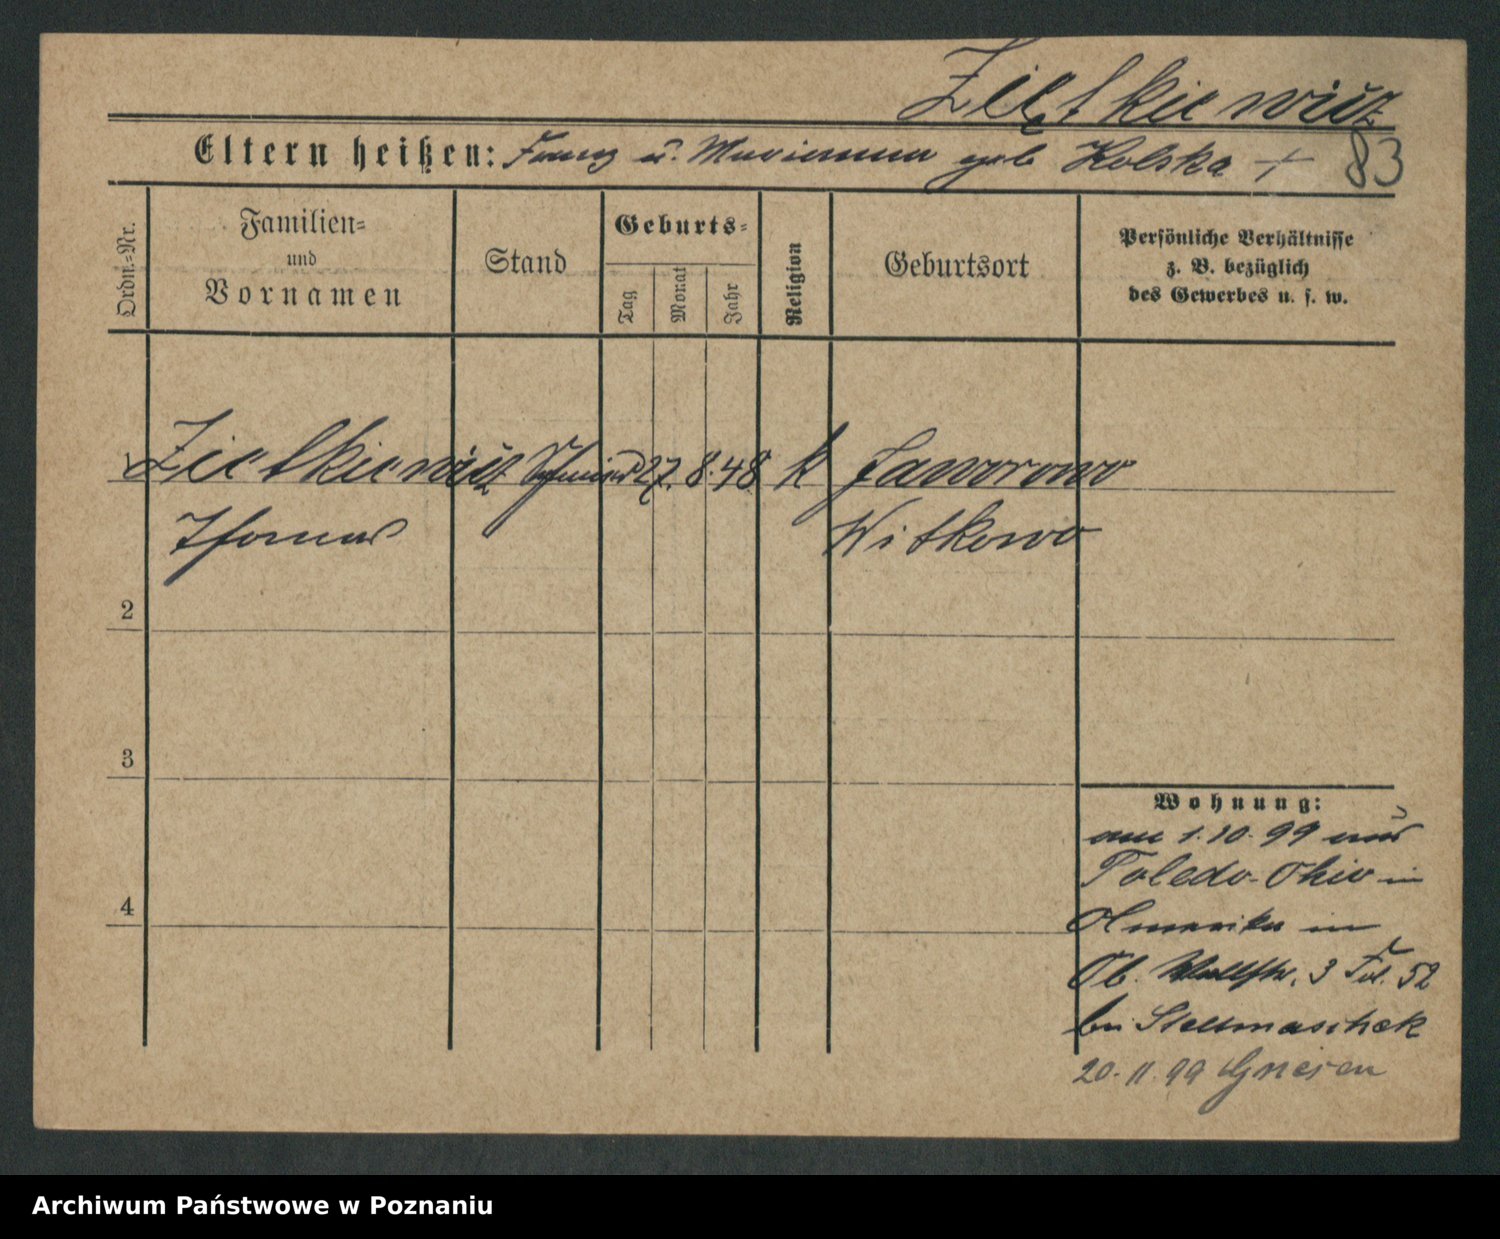 Ziętkiewicz
Eltern heißen: Franz u. Marianna geb Kolska +
83
Ordn.-Nr.
Familien-
und
Vornamen
Stand
Geburts-
Tag
Monat
Jahr
Religion
Geburtsort
Persönliche Verhältnisse
z. B. bezüglich
des Gewerbes u. s. w.
1 Zietkiewicz Schmied 27. 8. 48 k Jaworowo
Thomas Witkowo
2
3
4
Wohnung:
am 1. 10. 99 aus
Toledo-Ohio in
Amerika in
Ob. Wallstr. 3 Fol. 52
bei Stellmaschek
20. 11. 99 Gnesen
Archiwum Państwowe w Poznaniu